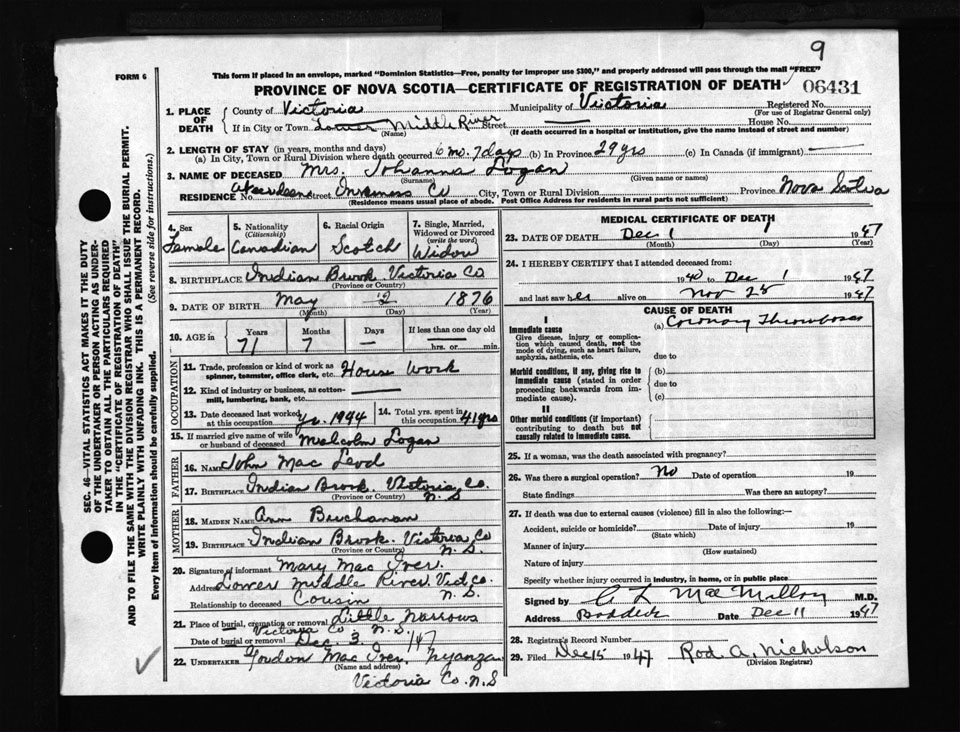 9
FORM 6
This form if placed in an envelope, marked "Dominion Statistics—Free, penalty for improper use $300," and properly addressed will pass through the mail "FREE"
PROVINCE OF NOVA SCOTIA—CERTIFICATE OF REGISTRATION OF DEATH
06431
1. PLACE OF DEATH
County of Victoria Municipality of Victoria Registered No.
(For use of Registrar General only)
If in City or Town Lower Middle River Street — House No.
(Name) (If death occurred in a hospital or institution, give the name instead of street and number)
2. LENGTH OF STAY (in years, months and days)
(a) In City, Town or Rural Division where death occurred 6 mo. 7 days (b) In Province 29 yrs (c) In Canada (if immigrant) —
3. NAME OF DECEASED Mrs. Johanna Logan
(Surname) (Given name or names)
RESIDENCE No. Aberdeen Street Inverness Co City, Town or Rural Division Province Nova Scotia
(Residence means usual place of abode. Post Office Address for residents in rural parts not sufficient)
4. Sex
Female
5. Nationality
(Citizenship)
Canadian
6. Racial Origin
Scotch
7. Single, Married, Widowed or Divorced
(write the word)
Widow
8. BIRTHPLACE Indian Brook Victoria Co
(Province or Country)
9. DATE OF BIRTH May 2 1876
(Month) (Day) (Year)
10. AGE in
Years Months Days If less than one day old
71 7 — hrs. or min.
OCCUPATION
11. Trade, profession or kind of work as spinner, teamster, office clerk, etc. House Work
12. Kind of industry or business, as cotton-mill, lumbering, bank, etc. —
13. Date deceased last worked at this occupation yr. 1944
14. Total yrs. spent in this occupation 41 yrs
15. If married give name of wife or husband of deceased Malcolm Logan
FATHER
16. NAME John Mac Leod
17. BIRTHPLACE Indian Brook. Victoria Co.
(Province or Country) N S
MOTHER
18. MAIDEN NAME Ann Buchanan
19. BIRTHPLACE Indian Brook. Victoria Co
(Province or Country) N. S.
20. Signature of informant Mary Mac Iver.
Address Lower Middle River. Vict Co.
Relationship to deceased Cousin N. S.
21. Place of burial, cremation or removal Little Narrows
Victoria Co N. S.
Date of burial or removal Dec. 3. /47
22. UNDERTAKER Gordon Mac Iver. Nyanza
(Name and address)
Victoria Co. N. S
MEDICAL CERTIFICATE OF DEATH
23. DATE OF DEATH Dec 1 1 1947
(Month) (Day) (Year)
24. I HEREBY CERTIFY that I attended deceased from:
1940 to Dec 1 1947
and last saw her alive on Nov 28 1947
CAUSE OF DEATH
I
Immediate cause (a) Coronary Thrombosis
Give disease, injury or complication which caused death, not the mode of dying, such as heart failure, asphyxia, asthenia, etc.
due to
Morbid conditions, if any, giving rise to immediate cause (stated in order proceeding backwards from immediate cause).
(b)
due to
(c)
II
Other morbid conditions (if important) contributing to death but not causally related to immediate cause.
25. If a woman, was the death associated with pregnancy?
26. Was there a surgical operation? No Date of operation 19
State findings Was there an autopsy?
27. If death was due to external causes (violence) fill in also the following:—
Accident, suicide or homicide? Date of injury 19
(State which)
Manner of injury
(How sustained)
Nature of injury
Specify whether injury occurred in industry, in home, or in public place
Signed by C L Mac Millan M.D.
Address Baddeck Date Dec 11 1947
28. Registrar's Record Number
29. Filed Dec 15 1947 Rod A. Nicholson
(Division Registrar)
SEC. 46—VITAL STATISTICS ACT MAKES IT THE DUTY
OF THE UNDERTAKER OR PERSON ACTING AS UNDERTAKER TO OBTAIN ALL THE PARTICULARS REQUIRED
IN THE "CERTIFICATE OF REGISTRATION OF DEATH"
AND TO FILE THE SAME WITH THE DIVISION REGISTRAR WHO SHALL ISSUE THE BURIAL PERMIT.
WRITE PLAINLY WITH UNFADING INK. THIS IS A PERMANENT RECORD.
Every item of information should be carefully supplied. (See reverse side for instructions.)